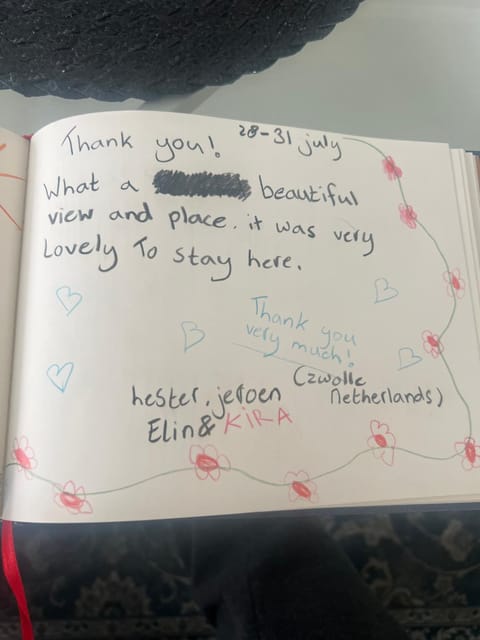 Thank you!
28-31 july
What a beautiful
view and place. it was very
Lovely To stay here.
Thank you
very much!
(zwolle
netherlands)
hester, jeroen
Elin & KIRA